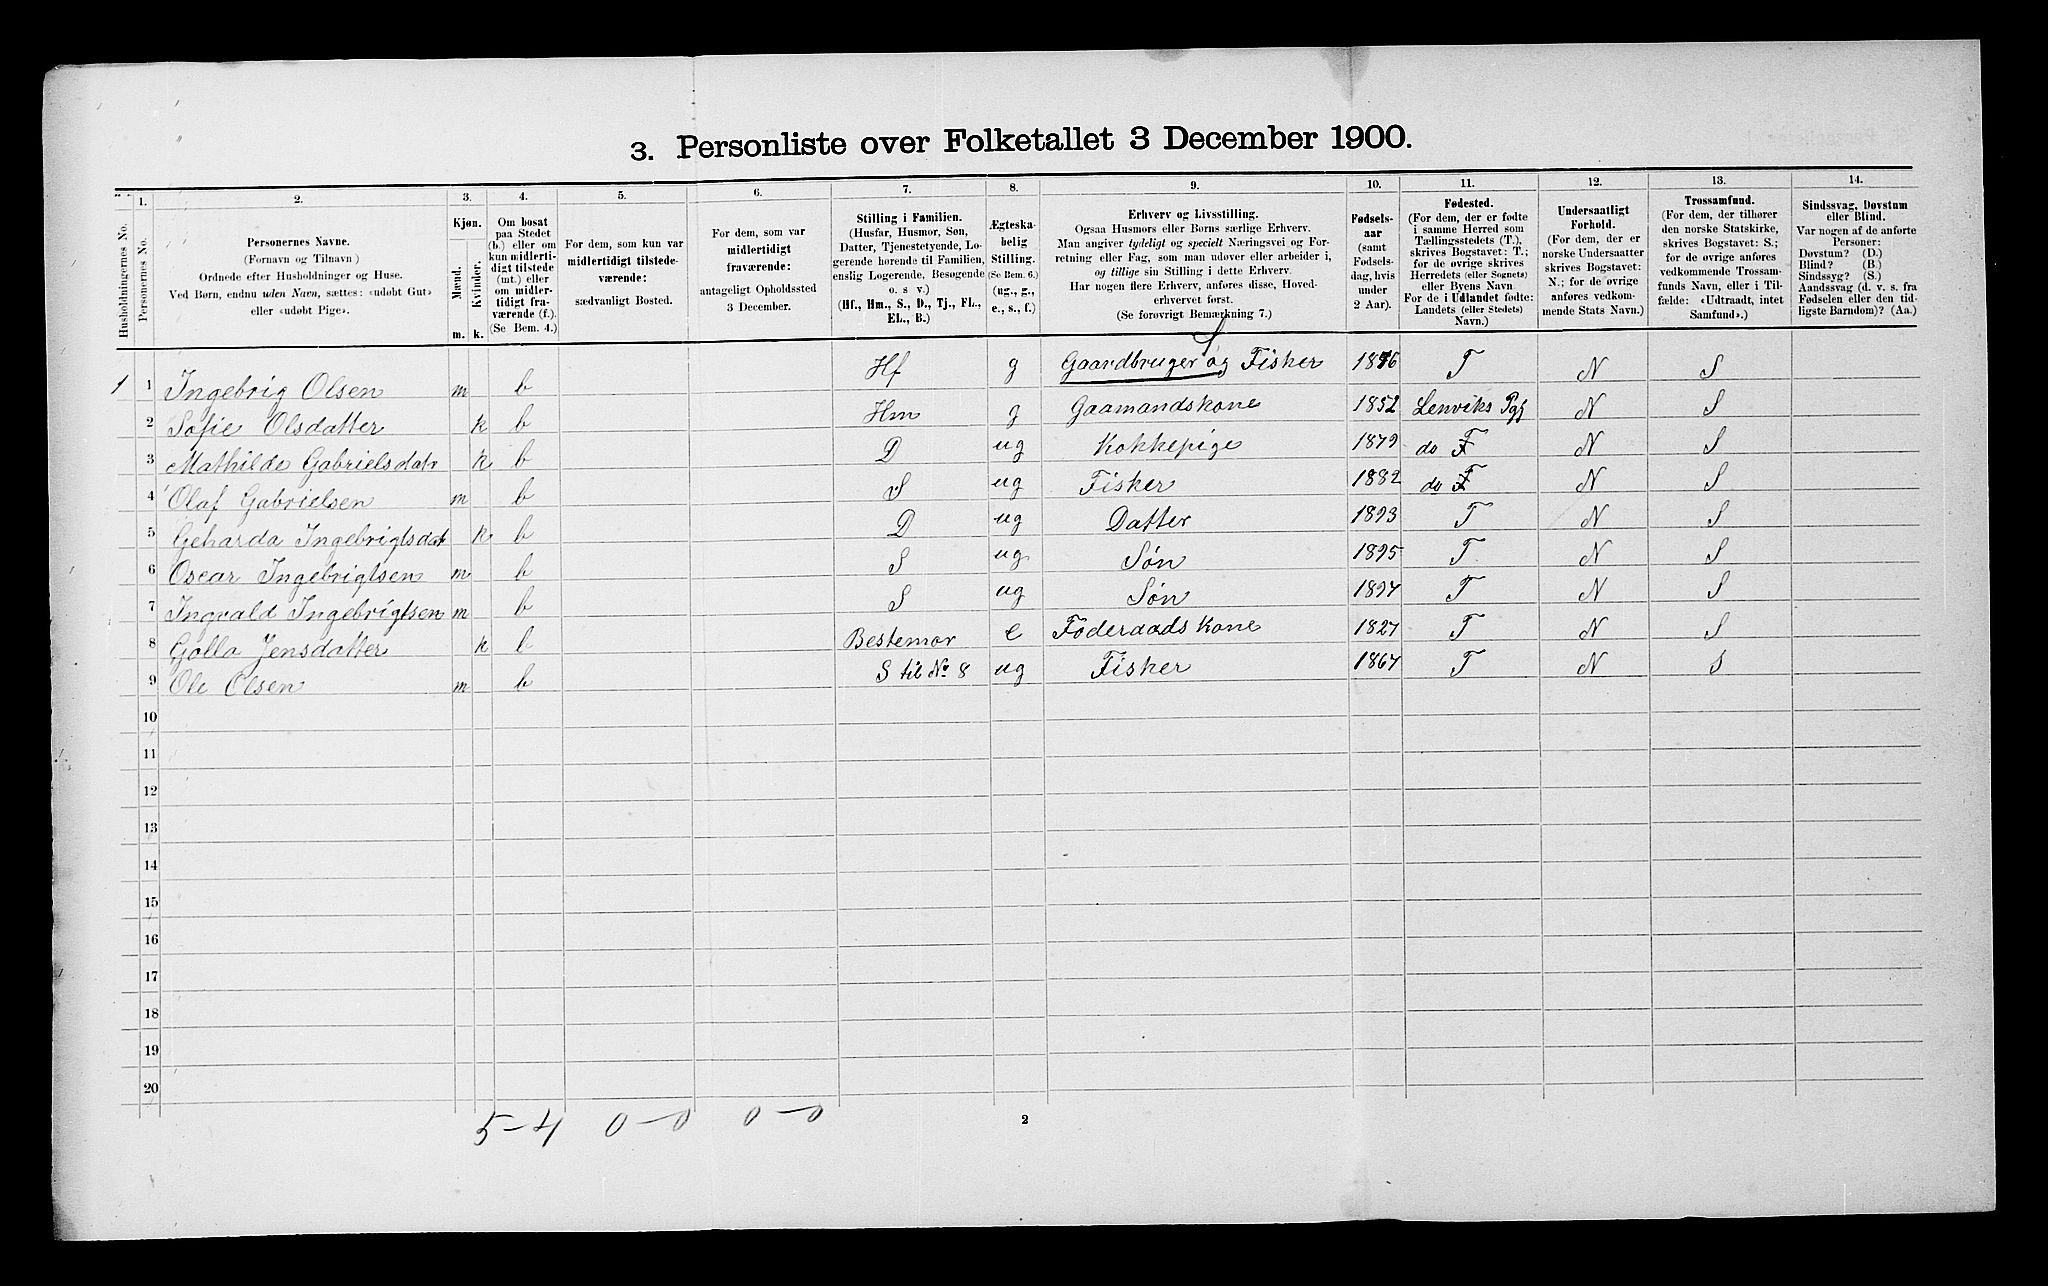 3. Personliste over Folketallet 3 December 1900.
Husholdningernes No.
1. Personernes No.
2. Personernes Navne. (Fornavn og Tilnavn) Ordnede efter Husholdninger og Huse. Ved Børn, endnu uden Navn, sættes: «udøbt Gut» eller «udøbt Pige».
3. Kjøn. Mænd. m. Kvinder. k.
4. Om bosat paa Stedet (b.) eller om kun midlertidigt tilstede (mt.) eller om midlertidigt fraværende (f.). (Se Bem. 4.)
5. For dem, som kun var midlertidigt tilstedeværende: sædvanligt Bosted.
6. For dem, som var midlertidigt fraværende: antageligt Opholdssted 3 December.
7. Stilling i Familien. (Husfar, Husmor, Søn, Datter, Tjenestetyende, Logerende hørende til Familien, enslig Logerende, Besøgende o. s v.) (Hf., Hm., S., D., Tj., FL., EL., B.)
8. Ægteskabelig Stilling. (Se Bem. 6.) (ug., g., e., s., f.)
9. Erhverv og Livsstilling. Ogsaa Husmors eller Børns særlige Erhverv. Man angiver tydeligt og specielt Næringsvei og Forretning eller Fag, som man udøver eller arbeider i, og tillige sin Stilling i dette Erhverv. Har nogen flere Erhverv, anføres disse, Hovederhvervet først. (Se forøvrigt Bemærkning 7.)
10. Fødselsaar (samt Fødselsdag, hvis under 2 Aar).
11. Fødested. (For dem, der er fødte i samme Herred som Tællingsstedets (T.), skrives Bogstavet: T.; for de øvrige skrives Herredets (eller Sognets) eller Byens Navn. For de i Udlandet fødte: Landets (eller Stedets) Navn.)
12. Undersaatligt Forhold. (For dem, der er norske Undersaatter skrives Bogstavet: N.; for de øvrige anføres vedkommende Stats Navn.)
13. Trossamfund. (For dem, der tilhører den norske Statskirke, skrives Bogstavet: S.; for de øvrige anføres vedkommende Trossamfunds Navn, eller i Tilfælde: «Udtraadt, intet Samfund».)
14. Sindssvag, Døvstum eller Blind. Var nogen af de anførte Personer: Døvstum? (D.) Blind? (B.) Sindssyg? (S.) Aandssvag (d. v. s. fra Fødselen eller den tidligste Barndom)? (Aa.)
1 1 Ingebrig Olsen m b Hf g Gaardbruger og Fisker S T N S
2 Sofie Olsdatter k b Hm g Gaamandskone 1852 Lenviks Pgj N S
3 Mathilde Gabrielsdatr k b D ug Kokkepige 1879 do T N S
4 Olaf Gabrielsen m b S ug Fisker 1882 do T N S
5 Geharda Ingebrigtsdat k b D ug Datter 1893 T N S
6 Oscar Ingebrigtsen m b S ug Søn 1895 T N S
7 Ingvald Ingebrigtsen m b S ug Søn 1897 T N S
8 Golla Jensdatter k b Bestemor e Føderaads Kone 1827 T N S
9 Ole Olsen m b S til No 8 ug Fisker 1867 T N S
10
11
12
13
14
15
16
17
18
19
20
5-4 0-0 0-0
2